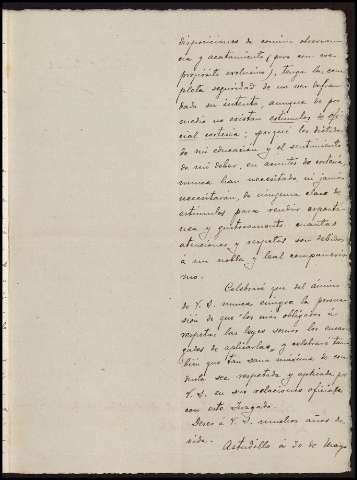 disposiciones de comun observan-
cia y acatamiento (pero con ese
propósito exclusivo), tenga la com-
pleta seguridad de no ver defrau-
dado su intento, aunque de por
medio no existan estímulos de ofi-
cial cortesía; porque los dictados
de mi educación y el sentimiento
de mi deber, en asuntos de cortesía
nunca han necesitado ni jamás
necesitarán, de ninguna clase de
estímulos para rendir espontá-
nea y gustosamente cuantas
atenciones y respetos son debidos
á un noble y leal compañeris-
mo.
Celebraré que del ánimo
de V. S. nunca emigre la persua-
sión de que los mas obligados á
respetar las leyes somos los encar-
gados de aplicarlas, y celebraré tam-
bién que tan sana máxima de con-
ducta sea respetada y aplicada por
V. S. en sus relaciones oficiales
con este Juzgado.
Deseo á V. S. muchos años de
vida.
Astudillo á 30 de Mayo